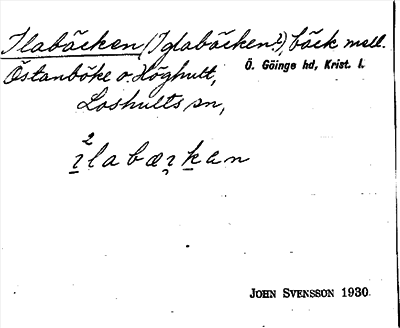 Ilabäcken (Iglabäcken?), bäck mell.
Östanböke o. Höghult, Ö. Göinge hd, Krist. l.
Loshults sn,
2
ɪlabæɪ̨kan
JOHN SVENSSON 1930